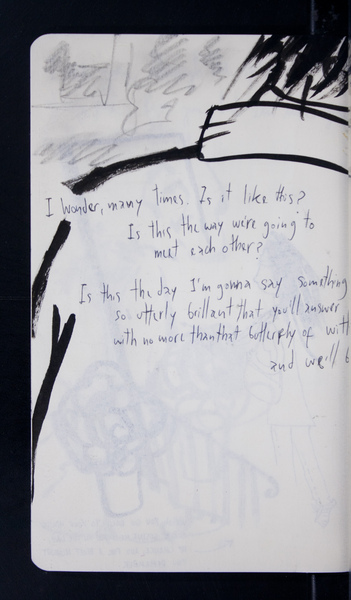 I wonder, many times. Is it like this?
Is this the way we're going to
meet each other?
Is this the day I'm gonna say something
so utterly brillant that you'll answer
with no more than that butterfly of
and we'll